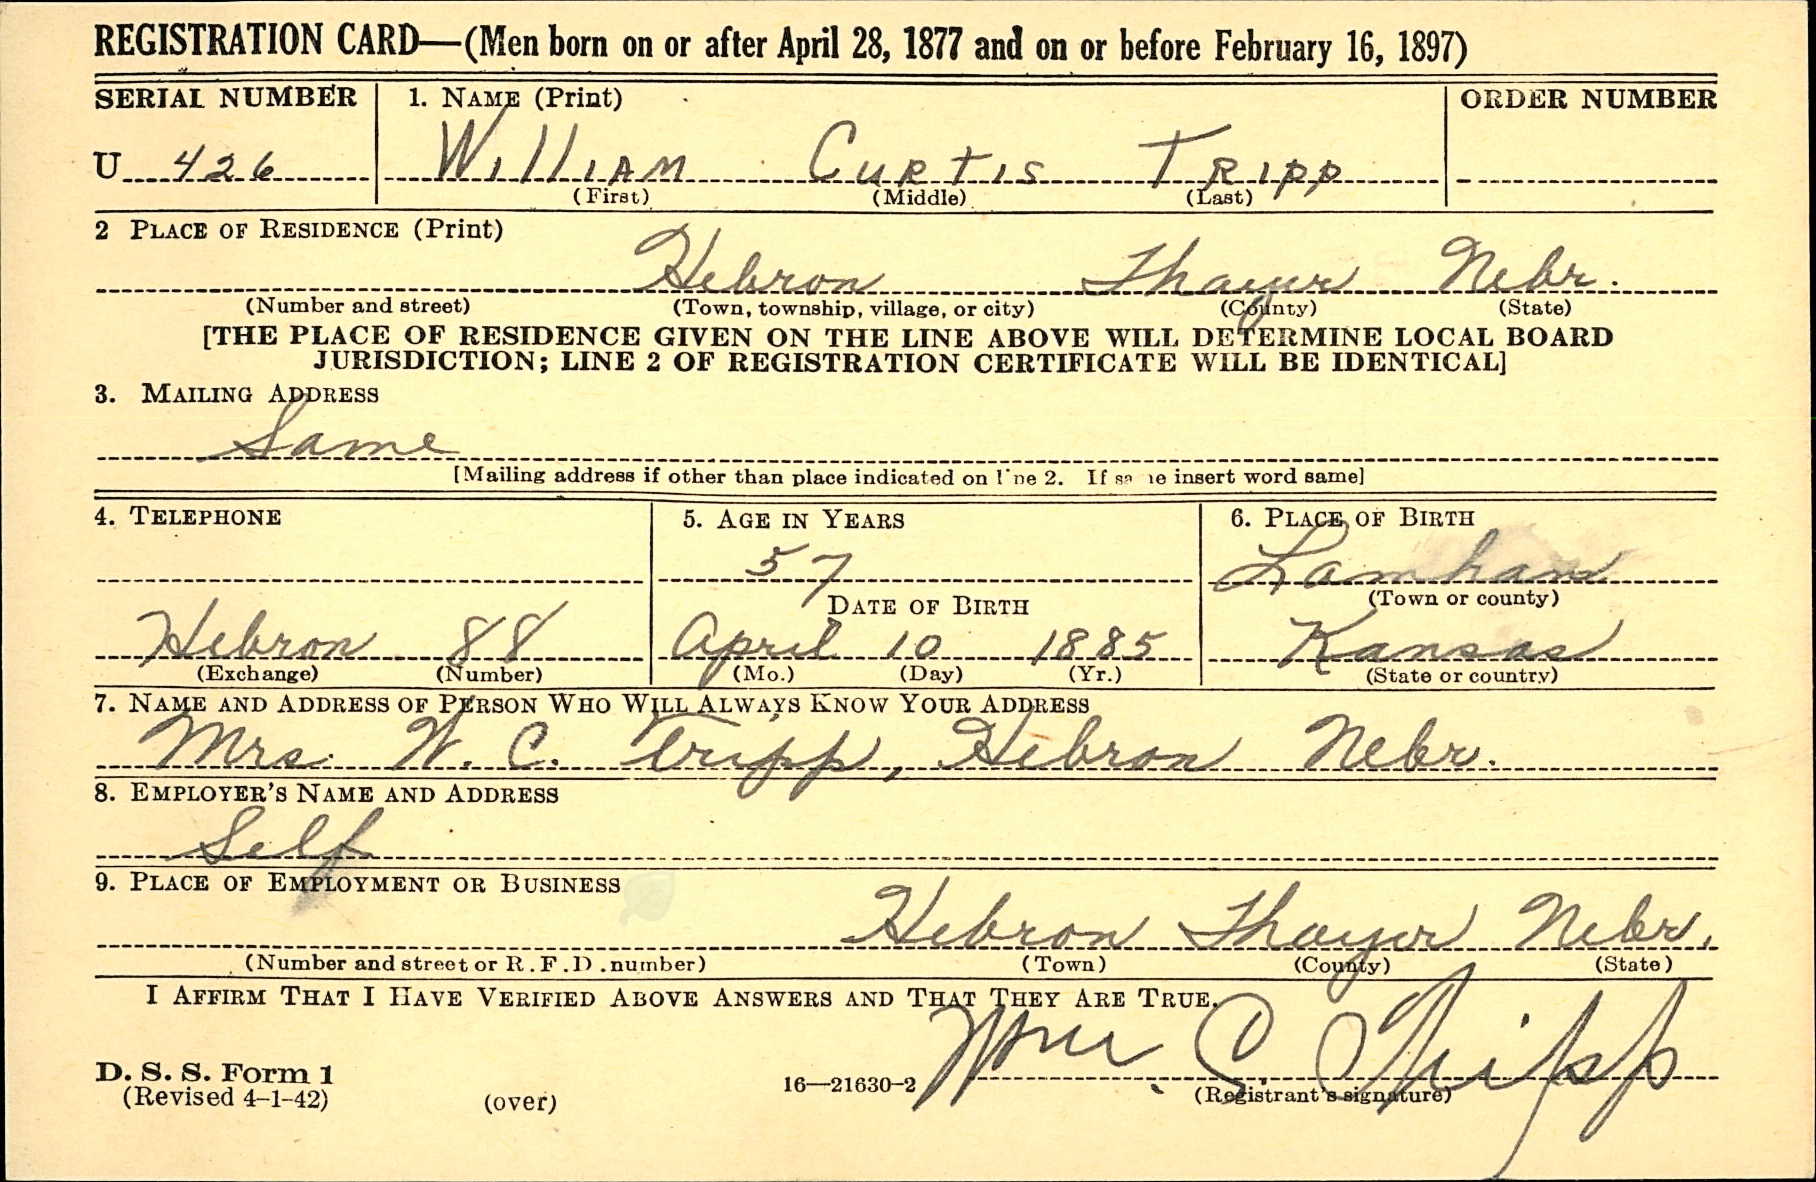 REGISTRATION CARD—(Men born on or after April 28, 1877 and on or before February 16, 1897)
SERIAL NUMBER 1. NAME (Print) ORDER NUMBER
U 426 William Curtis Tripp
(First) (Middle) (Last)
2 PLACE OF RESIDENCE (Print)
Hebron Thayer Nebr.
(Number and street) (Town, township, village, or city) (County) (State)
[THE PLACE OF RESIDENCE GIVEN ON THE LINE ABOVE WILL DETERMINE LOCAL BOARD
JURISDICTION; LINE 2 OF REGISTRATION CERTIFICATE WILL BE IDENTICAL]
3. MAILING ADDRESS
Same
[Mailing address if other than place indicated on line 2. If same insert word same]
4. TELEPHONE 5. AGE IN YEARS 6. PLACE OF BIRTH
57 Lamhans
DATE OF BIRTH (Town or county)
Hebron 88 April 10 1885 Kansas
(Exchange) (Number) (Mo.) (Day) (Yr.) (State or country)
7. NAME AND ADDRESS OF PERSON WHO WILL ALWAYS KNOW YOUR ADDRESS
Mrs. W. C. Tripp, Hebron Nebr.
8. EMPLOYER'S NAME AND ADDRESS
Self
9. PLACE OF EMPLOYMENT OR BUSINESS
Hebron Thayer Nebr.
(Number and street or R.F.D. number) (Town) (County) (State)
I AFFIRM THAT I HAVE VERIFIED ABOVE ANSWERS AND THAT THEY ARE TRUE.
Wm. C. Tripp
D. S. S. Form 1
(Revised 4-1-42) (over) 16—21630-2 (Registrant's signature)